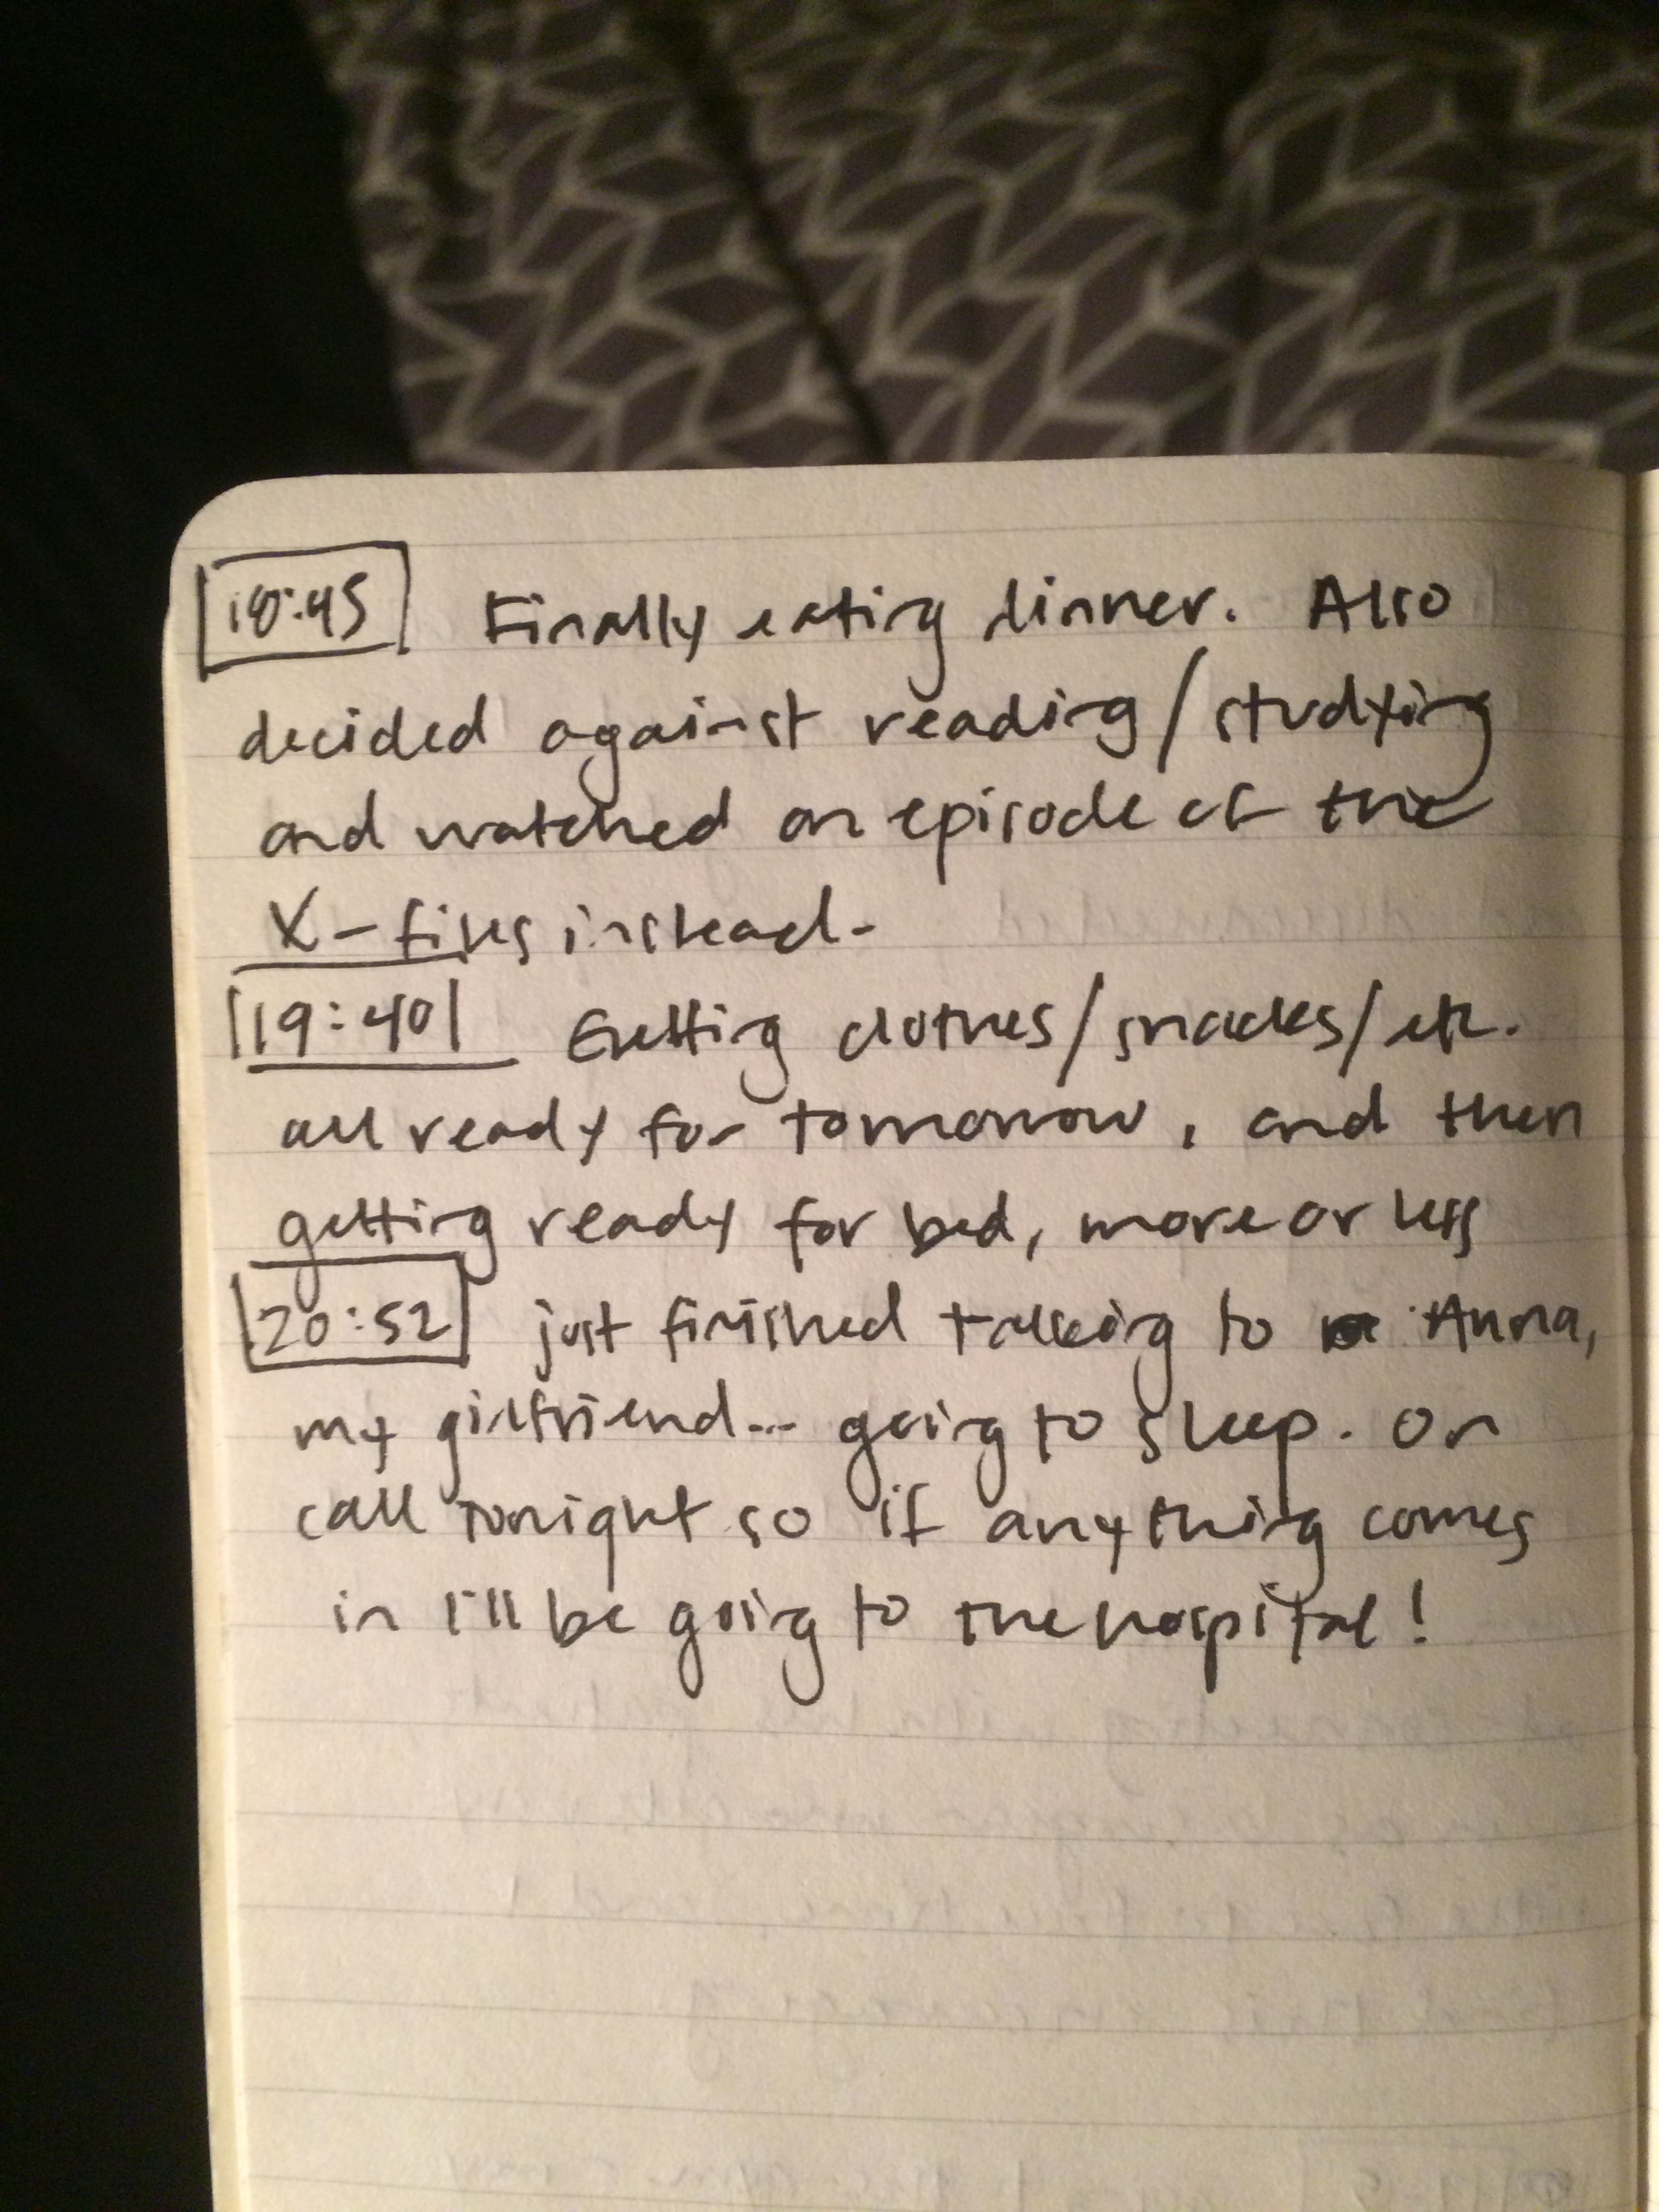 18:45 Finally eating dinner. Also
decided against reading/studying
and watched an episode of the
X-files instead.
19:40 Getting clothes/snacks/etc.
all ready for tomorrow, and then
getting ready for bed, more or less
20:52 just finished talking to Anna,
my girlfriend... going to sleep. On
call tonight so if anything comes
in I'll be going to the hospital!